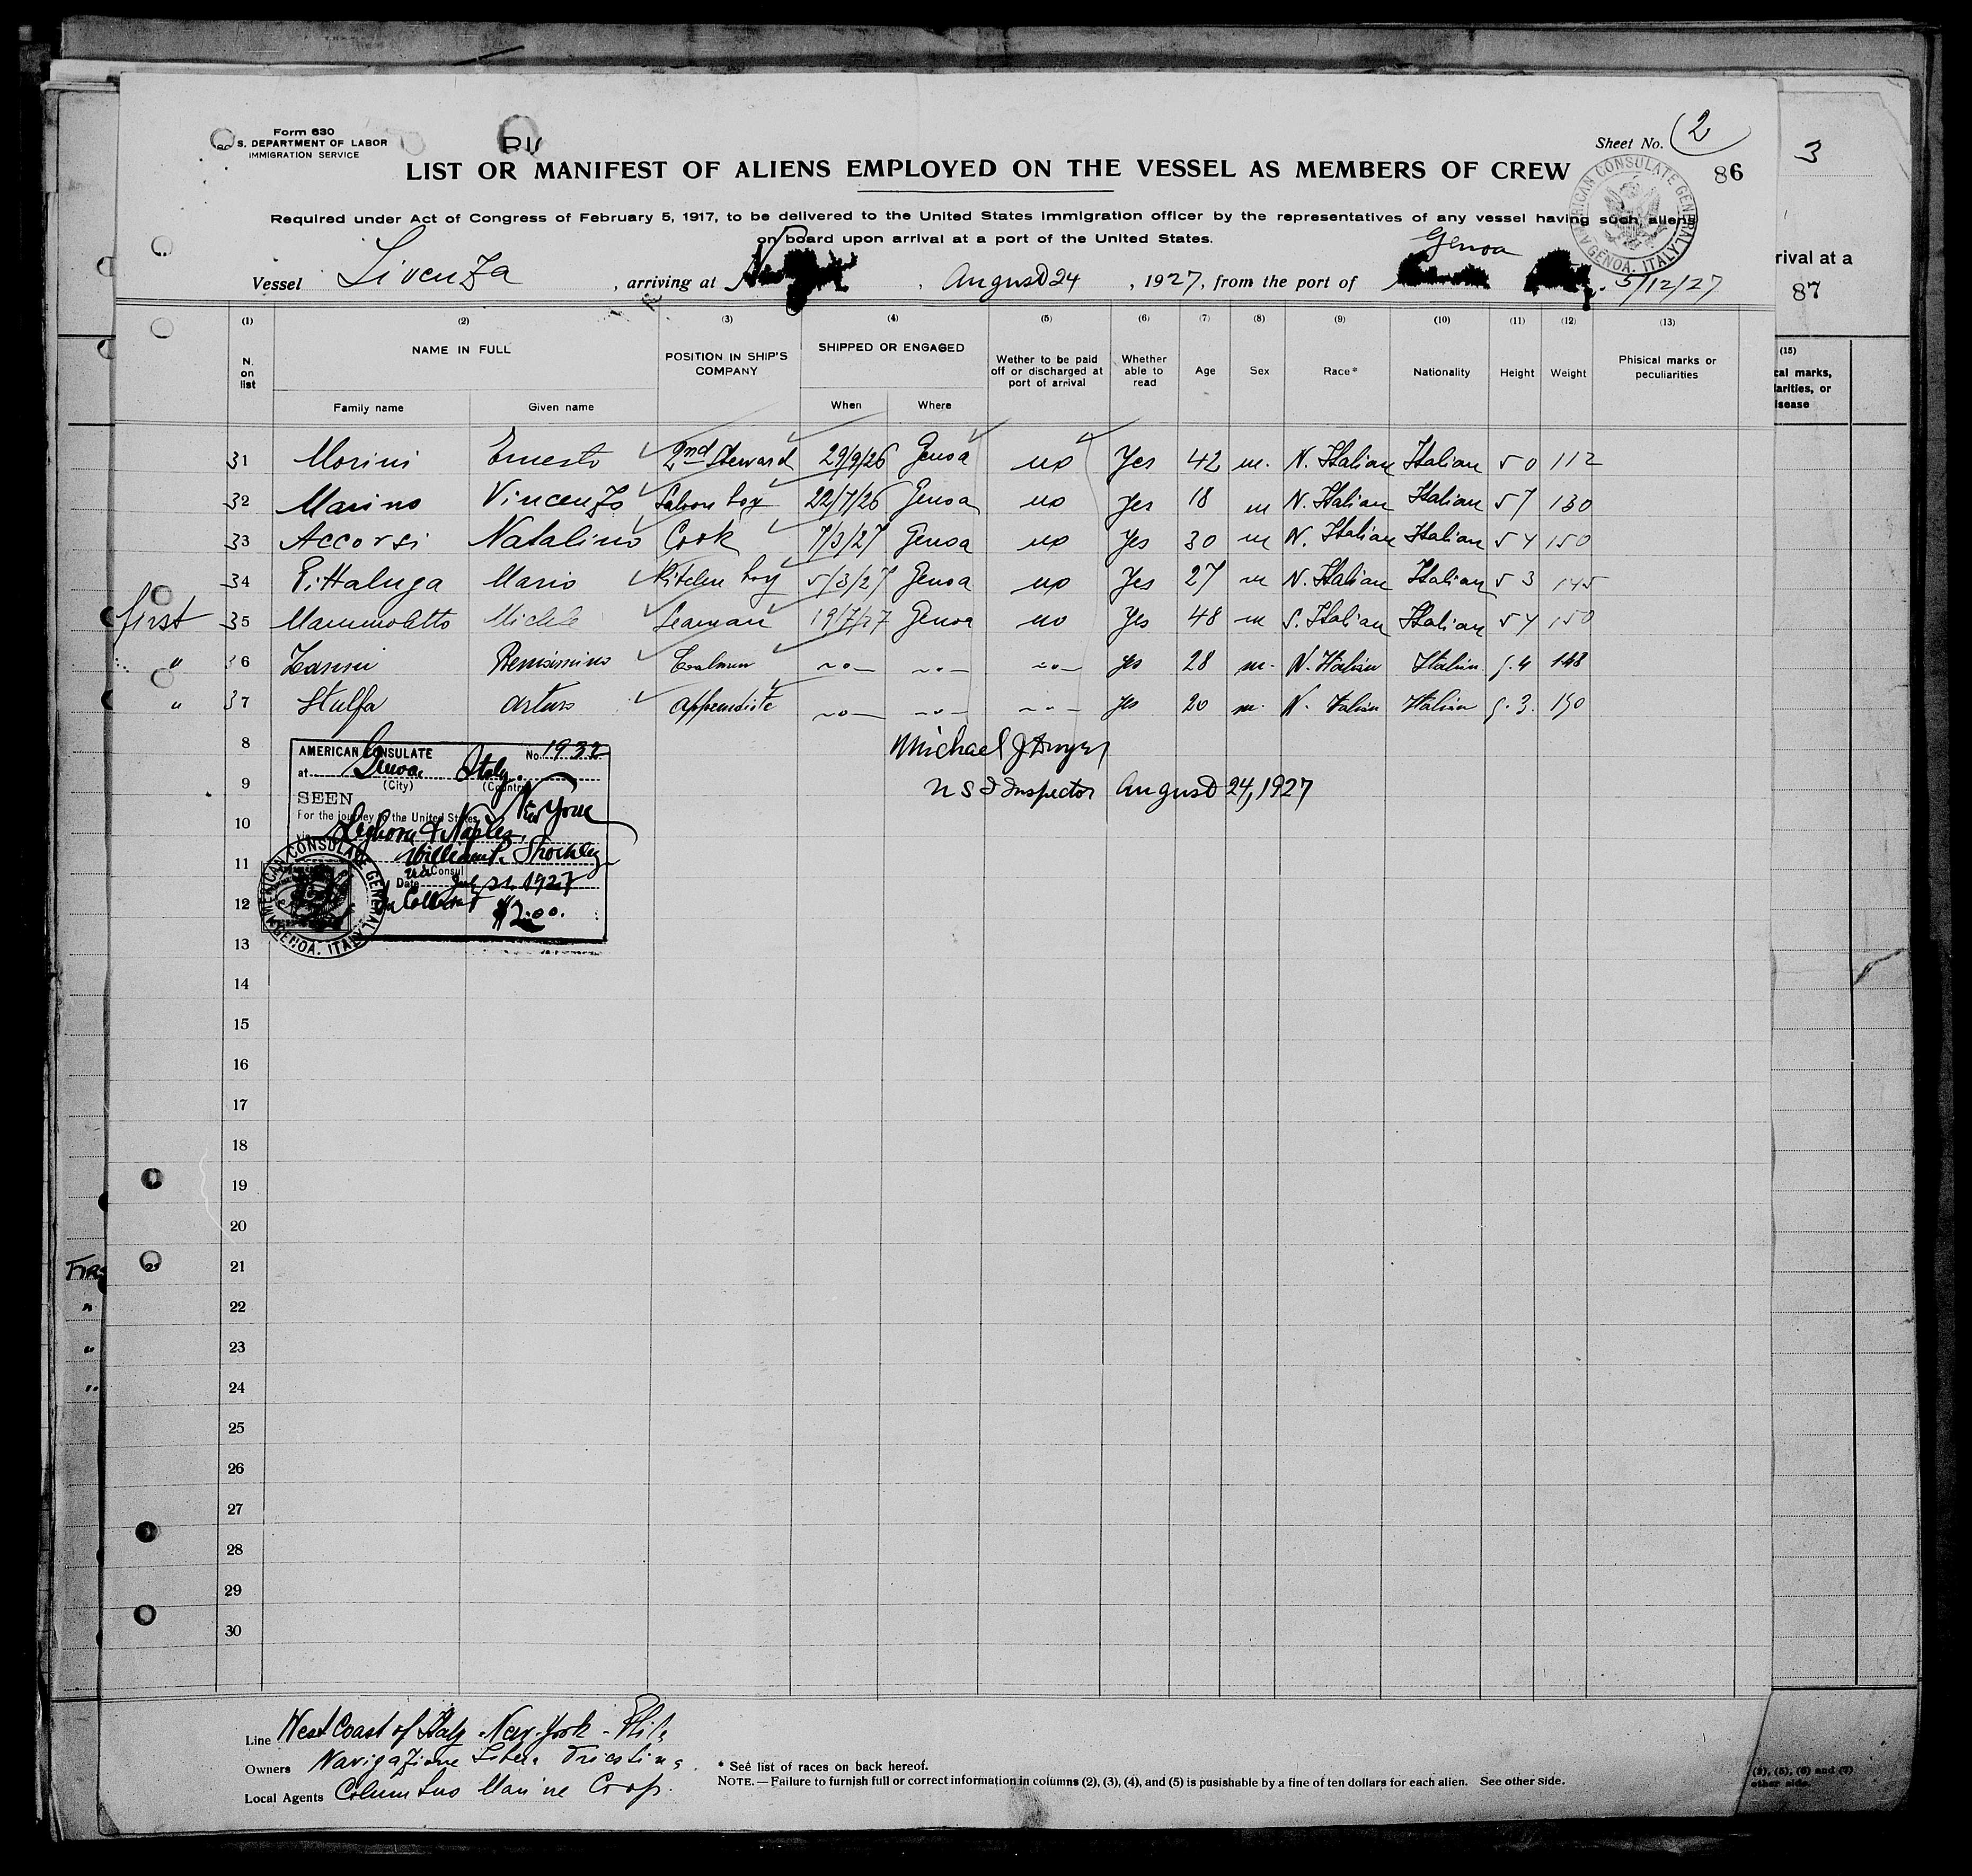 Form 630
S. DEPARTMENT OF LABOR
IMMIGRATION SERVICE
Sheet No. 2
3
LIST OR MANIFEST OF ALIENS EMPLOYED ON THE VESSEL AS MEMBERS OF CREW
86
Required under Act of Congress of February 5, 1917, to be delivered to the United States immigration officer by the representatives of any vessel having such aliens
on board upon arrival at a port of the United States.
AMERICAN CONSULATE GENERAL GENOA, ITALY
rival at a
87
Genoa
Vessel Livenza, arriving at , August 24, 1927, from the port of 5/12/27
(1) (2) (3) (4) (5) (6) (7) (8) (9) (10) (11) (12) (13)
N. on list
NAME IN FULL
Family name Given name
POSITION IN SHIP'S COMPANY
SHIPPED OR ENGAGED
When Where
Wether to be paid off or discharged at port of arrival
Whether able to read
Age Sex Race* Nationality Height Weight
Phisical marks or peculiarities
(15)
cal marks,
larities, or
isease
31 Morini Ernesto 2nd Steward 29/9/26 Genoa no Yes 42 m. N. Italian Italian 5 0 112
32 Marino Vincenzo Saloon boy 22/7/26 Genoa no Yes 18 m N. Italian Italian 5 7 130
33 Accorsi Natalino Cook 7/3/27 Genoa no Yes 30 m N. Italian Italian 5 4 150
34 Pittaluga Mario Kitchen boy 5/3/27 Genoa no Yes 27 m N. Italian Italian 5 3 145
first 35 Mammoletto Michele Seaman 19/7/27 Genoa no Yes 48 m S. Italian Italian 5 4 150
" 36 Zanni Coalman -"- -"- -"- yes 28 m. N. Italian Italian 5.4 148
" 37 Stulfa Arturo -"- -"- -"- yes 20 m. N. Italian Italian 5.3. 150
8
Michael J Dwyer
9
U S I Inspector August 24, 1927
AMERICAN CONSULATE No. 1932
at Genoa Italy.
(City) (Country)
SEEN
For the journey to the United States New York
via Leghorn & Naples.
William P. Shockley
Consul
Date July 21, 1927
$2.00.
AMERICAN CONSULATE GENERAL GENOA, ITALY
10
11
12
13
14
15
16
17
18
19
20
21
22
23
24
25
26
27
28
29
30
Line West Coast of Italy - New-York - Phila
Owners Navigazione Libera Triestina.
Local Agents Columbus Marine Corp.
* See list of races on back hereof.
NOTE.—Failure to furnish full or correct information in columns (2), (3), (4), and (5) is pusishable by a fine of ten dollars for each alien. See other side.
(2), (5), (6) and (7)
other side.